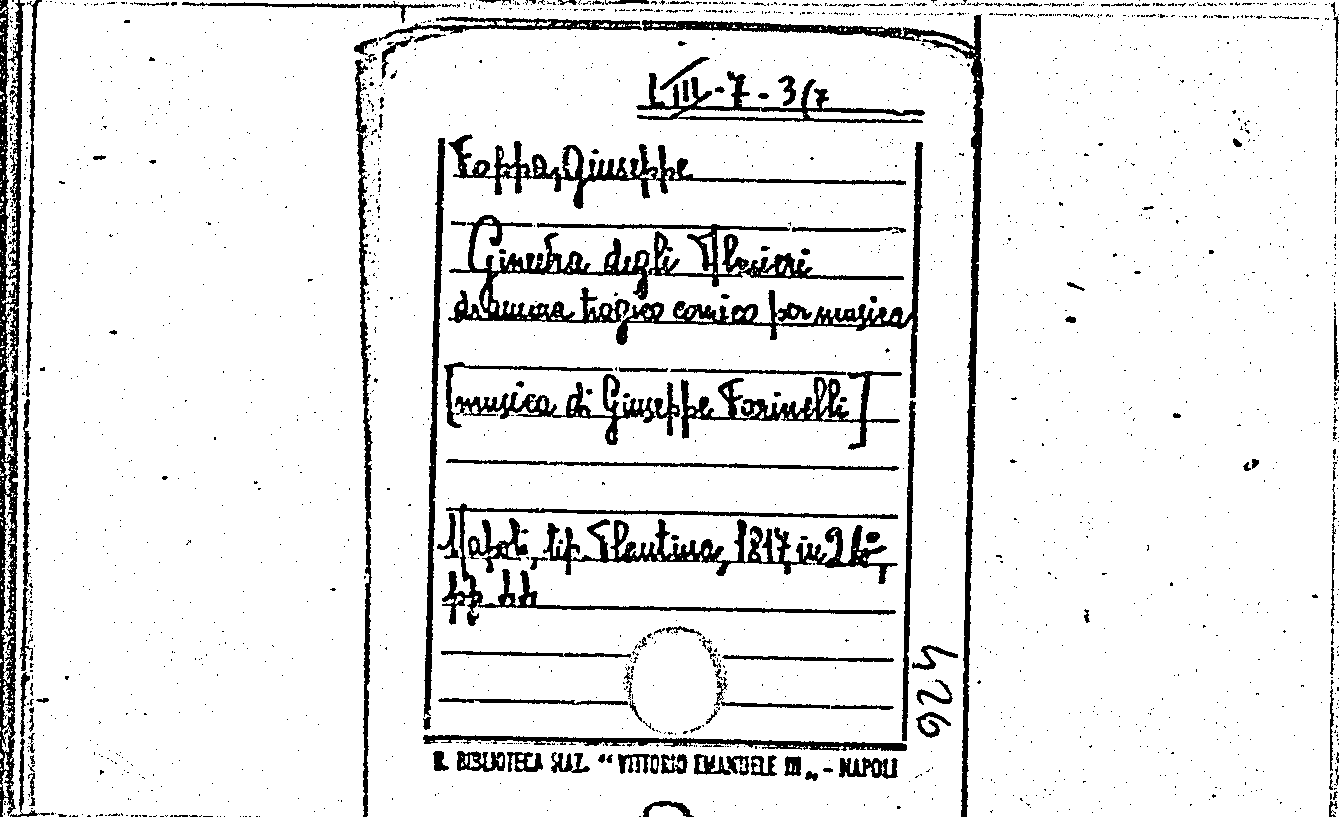 L III - 7 - 3(7
Foppa, Giuseppe
Ginevra degli Almieri
dramma tragico comico per musica
[musica di Giuseppe Farinelli]
Napoli, tip. Flautina, 1817, in 24°,
pp. 44
924
R. BIBLIOTECA NAZ. “ VITTORIO EMANUELE III „ - NAPOLI